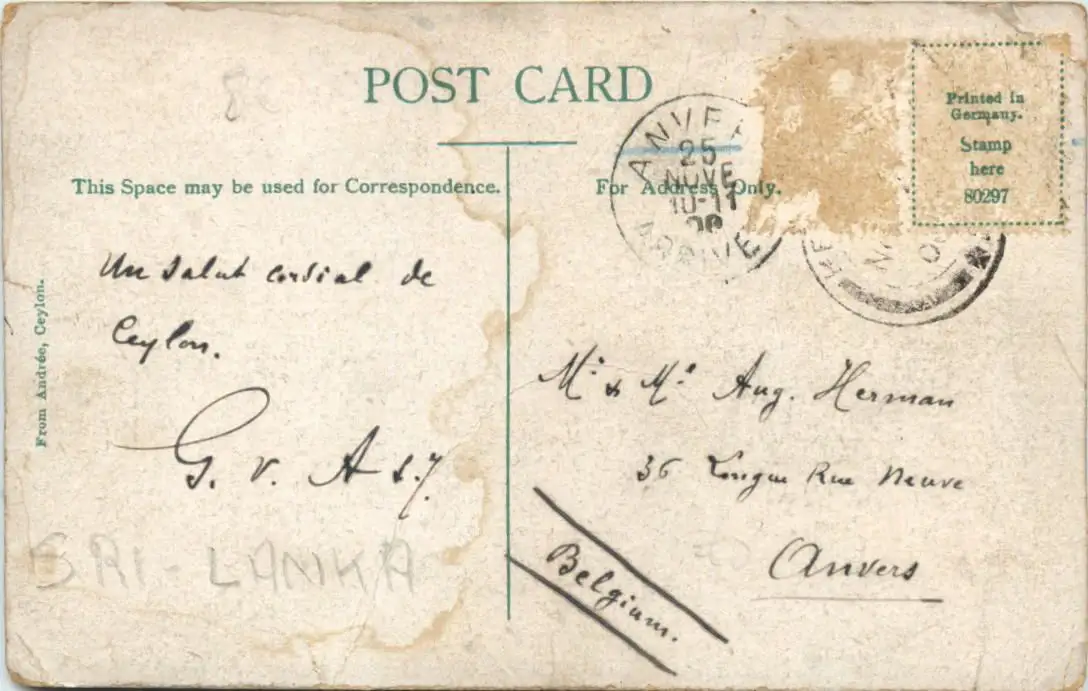 POST CARD
Printed in
Germany.
Stamp
here
80297
ANVE
25
NOVE
10-11
ARRIVE
This Space may be used for Correspondence.
For Address Only.
From Andrée, Ceylon.
Un salut cordial de
Ceylon.
G. v. A
SRI-LANKA
Mr & Mr Aug. Herman
36 Longue Rue Neuve
Anvers
Belgium.